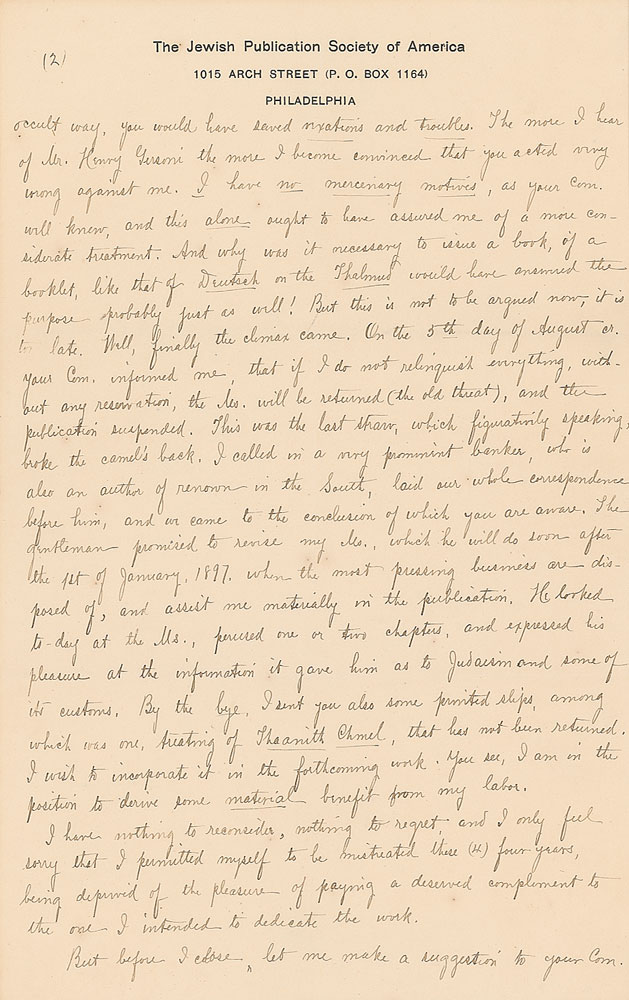 (2)
The Jewish Publication Society of America
1015 ARCH STREET (P. O. BOX 1164)
PHILADELPHIA
occult way, you would have saved vexations and troubles. The more I hear
of Mr. Henry Gersoni the more I become convinced that you acted very
wrong against me. I have no mercenary motives, as your Com.
will know, and this alone ought to have assured me of a more con-
siderate treatment. And why was it necessary to issue a book, if a
booklet, like that of Deutsch on the Thalmud would have answered the
purpose probably just as well! But this is not to be argued now, it is
to late. Well, finally the climax came. On the 5th day of August cr.
your Com. informed me, that if I do not relinquish everything, with-
out any reservation, the Ms. will be returned (the old threat), and the
publication suspended. This was the last straw, which figuratively speaking,
broke the camel's back. I called in a very prominent banker, who is
also an author of renown in the South, laid our whole correspondence
before him, and we came to the conclusion of which you are aware. The
gentleman promised to revise my Ms., which he will do soon after
the 1st of January, 1897. when the most pressing business are dis-
posed of, and assist me materially in the publication. He looked
to-day at the Ms., perused one or two chapters, and expressed his
pleasure at the information it gave him as to Judaism and some of
its customs. By the bye, I sent you also some printed slips, among
which was one, treating of Thaanith Chmel, that has not been returned.
I wish to incorporate it in the forthcoming work. You see, I am in the
position to derive some material benefit from my labor.
I have nothing to reconsider, nothing to regret, and I only feel
sorry that I permitted myself to be mistreated these (4) four years,
being deprived of the pleasure of paying a deserved compliment to
the one I intended to dedicate the work.
But before I close, let me make a suggestion to your Com.